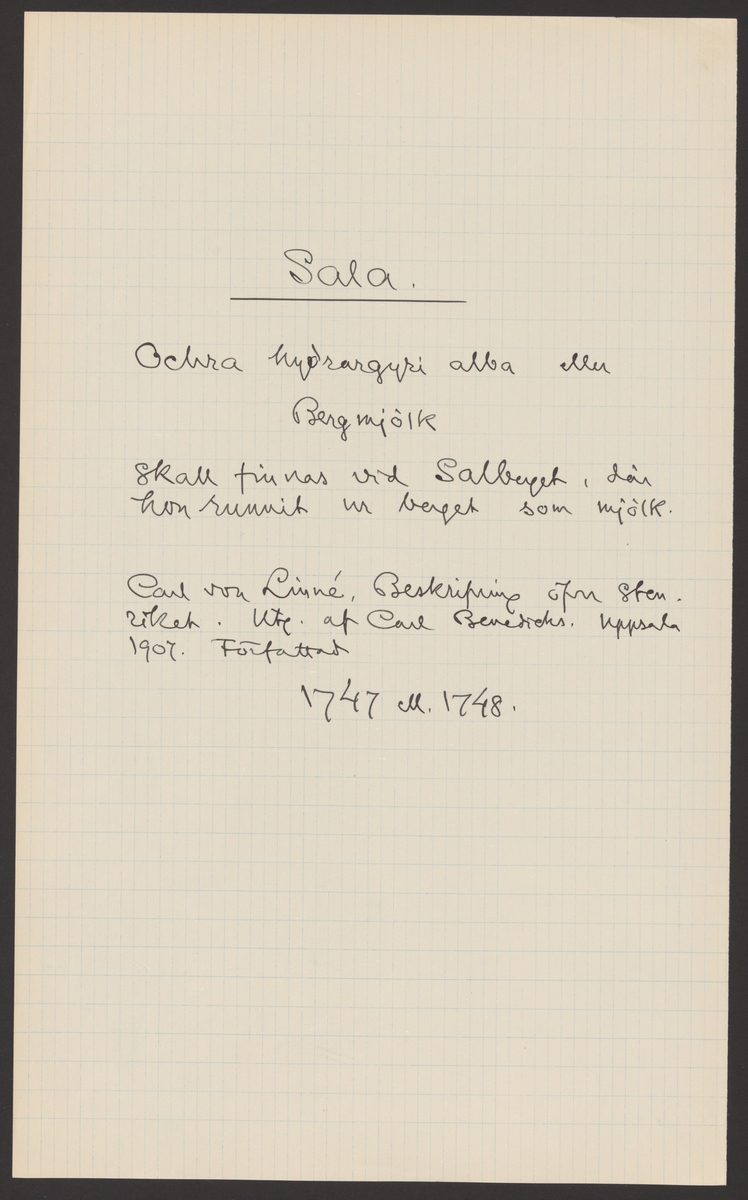 Sala.
Ochra hydrargyri alba eller
Bergmjölk
skall finnas vid Salberget, där
hon runnit ur berget som mjölk.
Carl von Linné, Beskrifning öfver Sten-
riket. Utg. af Carl Benedicks. Uppsala
1907. Författad
1747 ell. 1748.